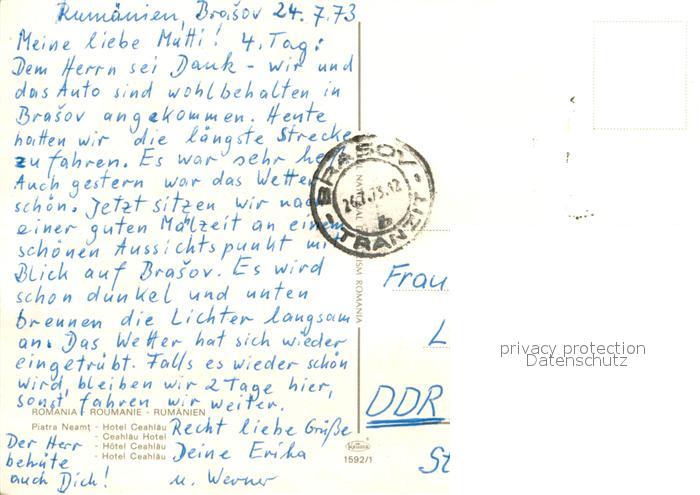 Rumänien, Brašov 24.7.73
Meine liebe Mutti! 4. Tag:
Dem Herrn sei Dank - wir und
das Auto sind wohlbehalten in
Brašov angekommen. Heute
hatten wir die längste Strecke
zu fahren. Es war sehr heiß
Auch gestern war das Wetter
schön. Jetzt sitzen wir nach
einer guten Malzeit an einem
schönen Aussichtspunkt mit
Blick auf Brašov. Es wird
schon dunkel und unten
brennen die Lichter langsam
an. Das Wetter hat sich wieder
eingetrübt. Falls es wieder schön
wird, bleiben wir 2 Tage hier,
sonst fahren wir weiter.
ROMANIA - ROUMANIE - RUMÄNIEN
Piatra Neamţ - Hotel Ceahlău
- Ceahlău Hotel
- Hôtel Ceahlău
- Hotel Ceahlău
Recht liebe Grüße
Deine Erika
u. Werner
Der Herr
behüte
auch Dich!
BRAŞOV
TRANZIT
ISM ROMANIA
1592/1
Frau
L
DDR
St
privacy protection
Datenschutz